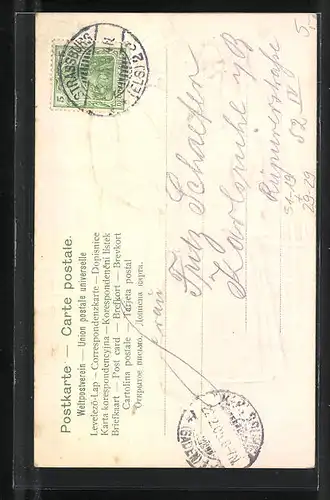 Postkarte. — Carte postale.
Weltpostverein — Union postale universelle
Levelező-Lap — Correspondenzkarte — Dopisnice
Karta korespondencyjna — Korespondenční lístek
Briefkaart — Post card — Brefkort — Brevkort
Cartolina postale — Tarjeta postal
Открытое письмо. Дописна карта.
STRASSBURG
(ELS.) 2
5
Frau
Fritz Schaffer
Karlsruhe i/B
52 IV
29-29
5,-